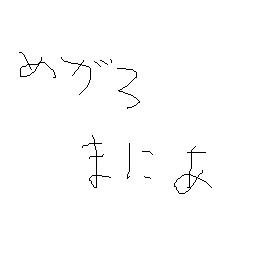 めがろ
まによ